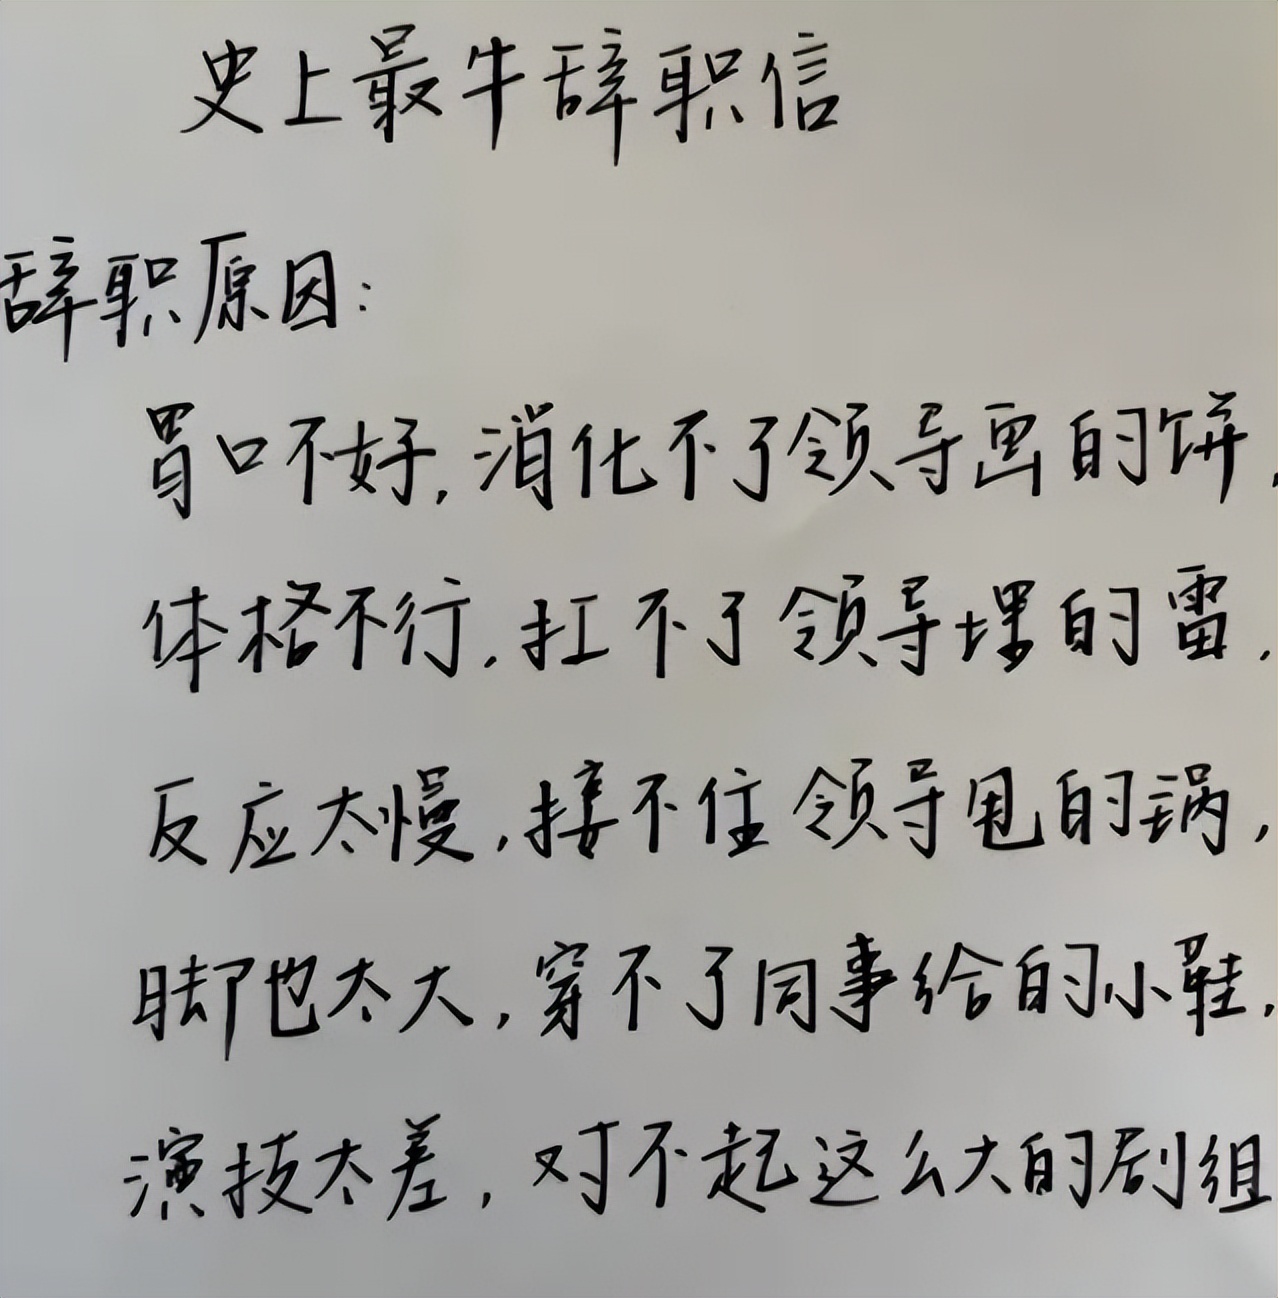 史上最牛辞职信
辞职原因:
胃口不好,消化不了领导画的饼,
体格不行,扛不了领导埋的雷,
反应太慢,接不住领导甩的锅,
脚也太大,穿不了同事给的小鞋,
演技太差,对不起这么大的剧组